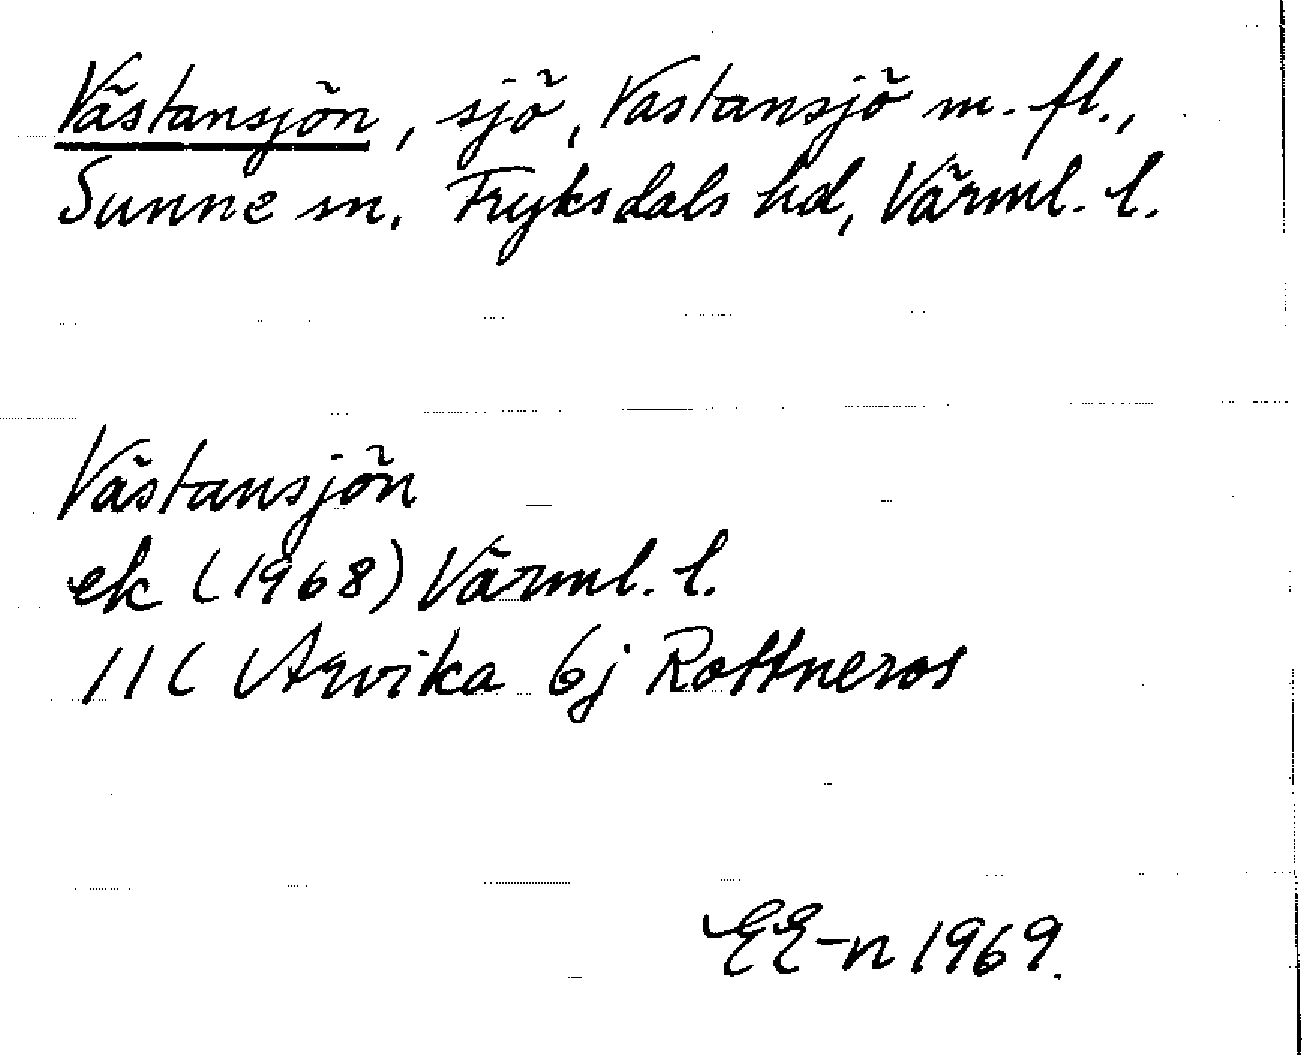 Västansjön, sjö, Västansjö m.fl.,
Sunne sn, Fryksdals hd, Värml. l.
Västansjön
ek (1968) Värml. l.
11C Arvika 6j Rottneros
EE-n 1969.